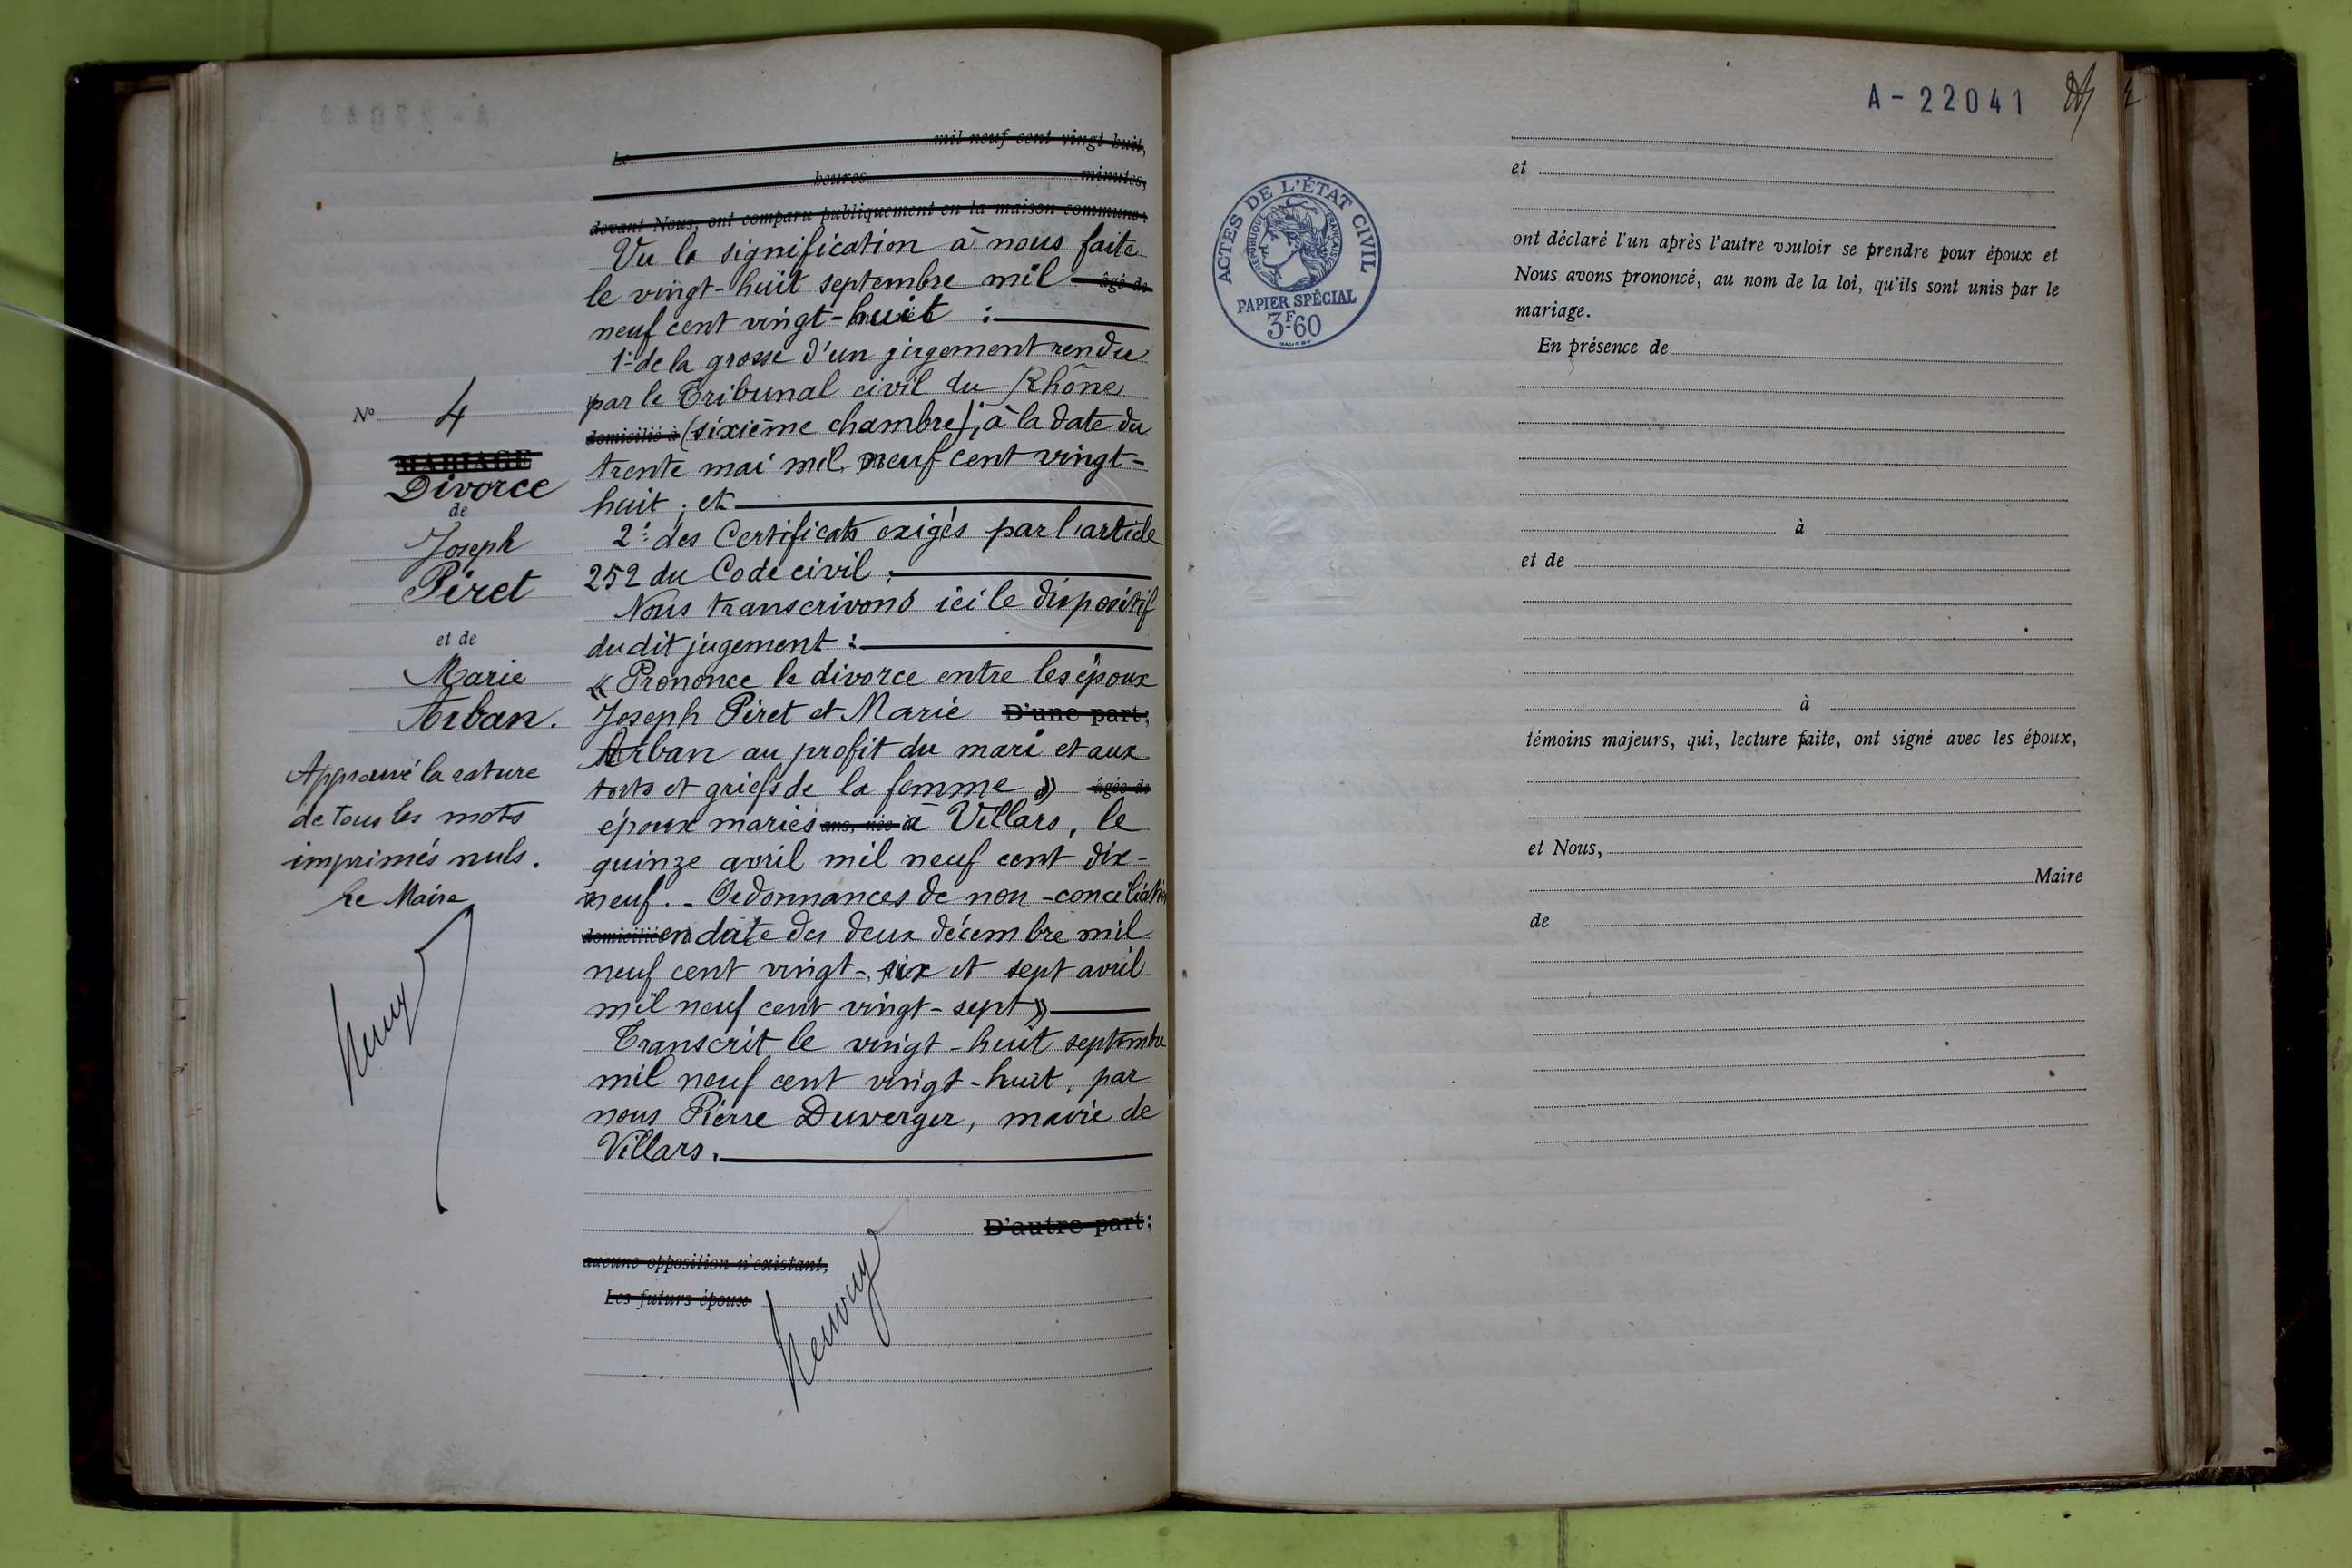 Le mil neuf cent vingt huit,
heures minutes,
devant Nous, ont comparu publiquement en la maison commune:
Vu la signification à nous faite
le vingt-huit septembre mil âgé de
neuf cent vingt-huit :
1° de la grosse d'un jugement rendu
par le Tribunal civil du Rhône
domicilié à (sixième chambre), à la date du
trente mai mil neuf cent vingt-
huit ; et
2° des Certificats exigés par l'article
252 du Code civil ;
Nous transcrivons ici le dispositif
du dit jugement :
« Prononce le divorce entre les époux
Joseph Piret et Marie D'une part;
Arban au profit du mari et aux
torts et griefs de la femme » âgée de
époux mariés ans, née à Villars, le
quinze avril mil neuf cent dix-
neuf. - Ordonnances de non-conciliation
domiciliée en date des deux décembre mil
neuf cent vingt-six et sept avril
mil neuf cent vingt-sept »
Transcrit le vingt-huit septembre
mil neuf cent vingt-huit, par
nous Pierre Duverger, maire de
Villars.
D'autre part;
aucune opposition n'existant,
Les futurs époux
N° 4
MARIAGE
Divorce
de
Joseph
Piret
et de
Marie
Arban.
Approuvé la rature
de tous les mots
imprimés nuls.
Le Maire
A-22041
ACTES DE L'ÉTAT CIVIL
RÉPUBLIQUE FRANÇAISE
PAPIER SPÉCIAL
3F60
et
ont déclaré l'un après l'autre vouloir se prendre pour époux et
Nous avons prononcé, au nom de la loi, qu'ils sont unis par le
mariage.
En présence de
à
et de
à
témoins majeurs, qui, lecture faite, ont signé avec les époux,
et Nous,
Maire
de